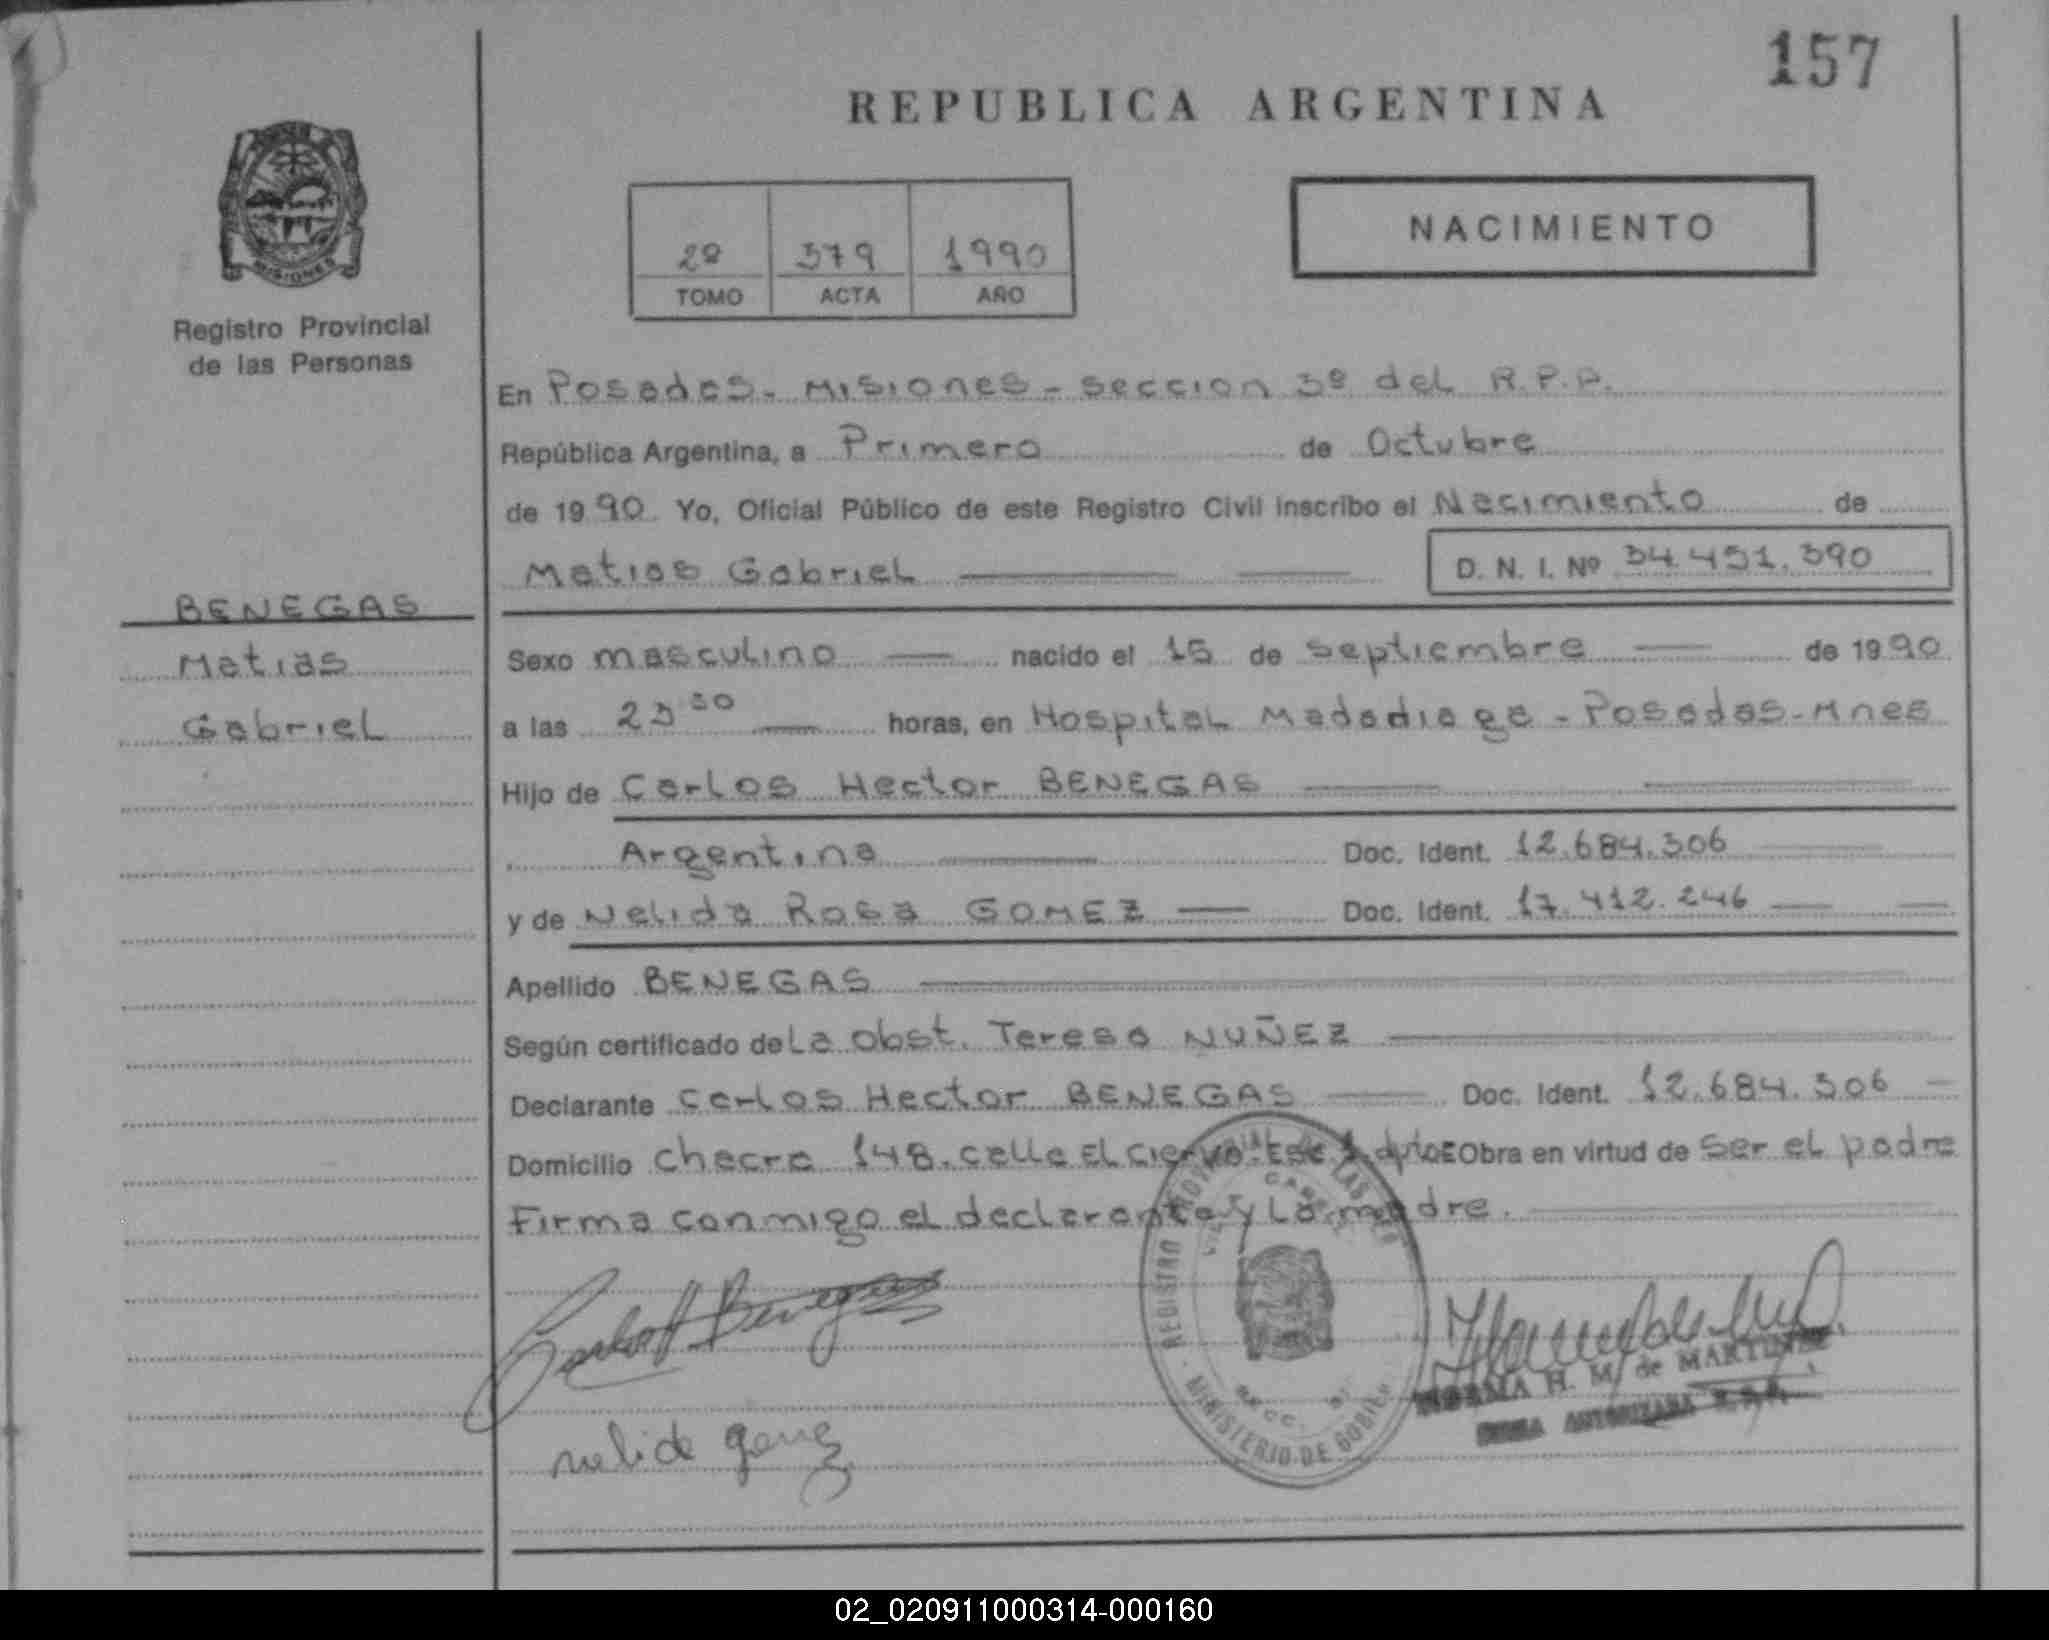 157
REPUBLICA ARGENTINA
2º 379 1990
TOMO ACTA AÑO
NACIMIENTO
MISIONES
Registro Provincial
de las Personas
En Posadas - Misiones - seccion 3º del R.P.P.
República Argentina, a Primero de Octubre
de 1990 Yo, Oficial Público de este Registro Civil inscribo el Nacimiento de
Matias Gabriel D. N. I. Nº 34.451.390
BENEGAS
Matias
Gabriel
Sexo masculino nacido el 15 de septiembre de 1990
a las 23 30 horas, en Hospital Madariaga - Posadas - Mnes
Hijo de Carlos Hector BENEGAS
Argentina Doc. Ident. 12.684.306
y de Nelida Rosa GOMEZ Doc. Ident. 17.412.246
Apellido BENEGAS
Según certificado de La obst. Teresa NUÑEZ
Declarante Carlos Hector BENEGAS Doc. Ident. 12.684.306
Domicilio chacra 148. calle El Ciervo. Esc 1 dpto E Obra en virtud de ser el padre
Firma conmigo el declarante y La madre.
REGISTRO DE LAS
MINISTERIO DE GOBIER
Carlos H Benegas
nelida gomez
NORMA H. M. de MARTINEZ
FIRMA AUTORIZADA
02_020911000314-000160